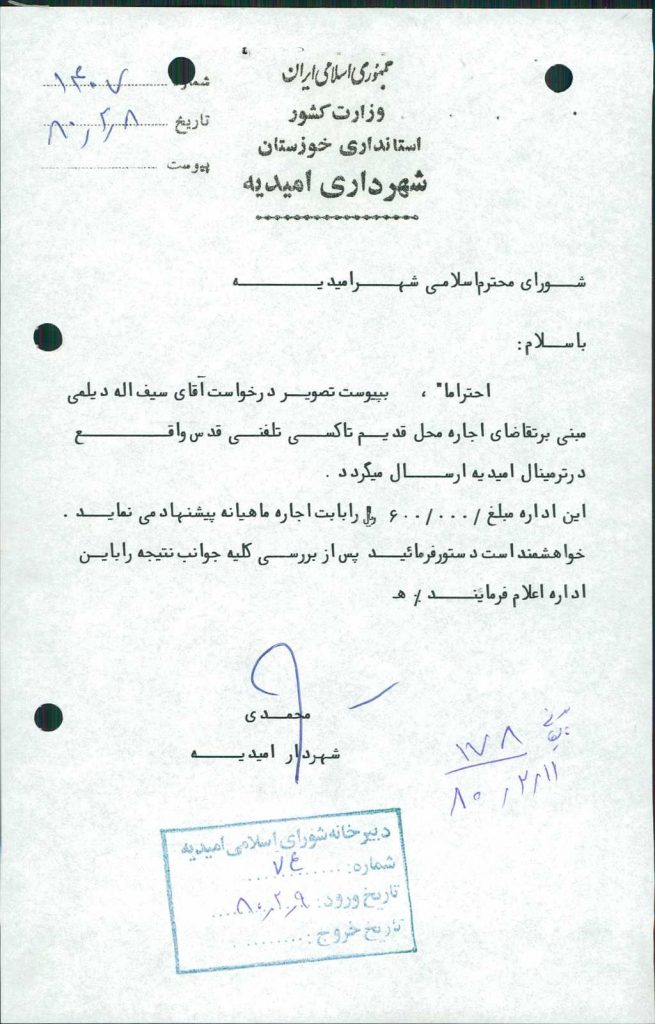 جمهوری اسلامی ایران
وزارت کشور
استانداری خوزستان
شهرداری امیدیه
شماره ۱۴۰۷
تاریخ ۸۰/۲/۸
پیوست
شورای محترم اسلامی شهر امیدیه
باسلام:
احتراما"، بپیوست تصویر درخواست آقای سیف اله دیلمی
مبنی برتقاضای اجاره محل قدیم تاکسی تلفنی قدس واقع
درترمینال امیدیه ارسال میگردد.
این اداره مبلغ /۶۰۰/۰۰۰ رابابت اجاره ماهیانه پیشنهاد می نماید.
خواهشمند است دستورفرمائید پس از بررسی کلیه جوانب نتیجه راباین
اداره اعلام فرمایند٪ ه
محمدی
شهردار امیدیه
۱۷۸
۸۰/۲/۱۱
دبیرخانه شورای اسلامی امیدیه
شماره: ۷۴
تاریخ ورود: ۸۰/۲/۹
تاریخ خروج: